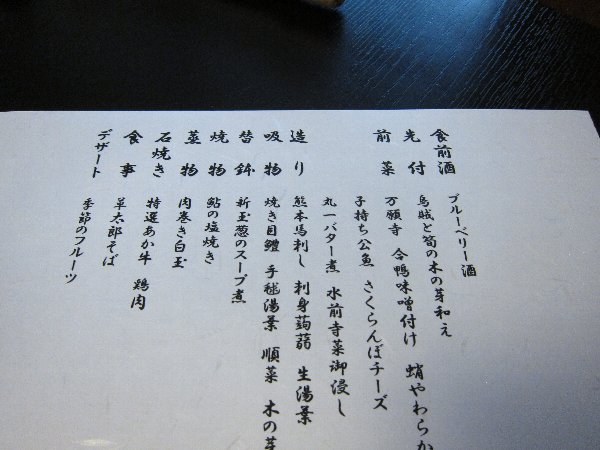 食前酒 ブルーベリー酒
先付 烏賊と筍の木の芽和え
前菜 万願寺 合鴨味噌付け 蛸やわらか
子持ち公魚 さくらんぼチーズ
丸一バター煮 水前寺菜御浸し
造り 熊本馬刺し 刺身蒟蒻 生湯葉
吸物 焼き目鱧 手毬湯葉 順菜 木の芽
替鉢 新玉葱のスープ煮
焼物 鮎の塩焼き
蒸物 肉巻き白玉
石焼き 特選あか牛 鶏肉
食事 草太郎そば
デザート 季節のフルーツ